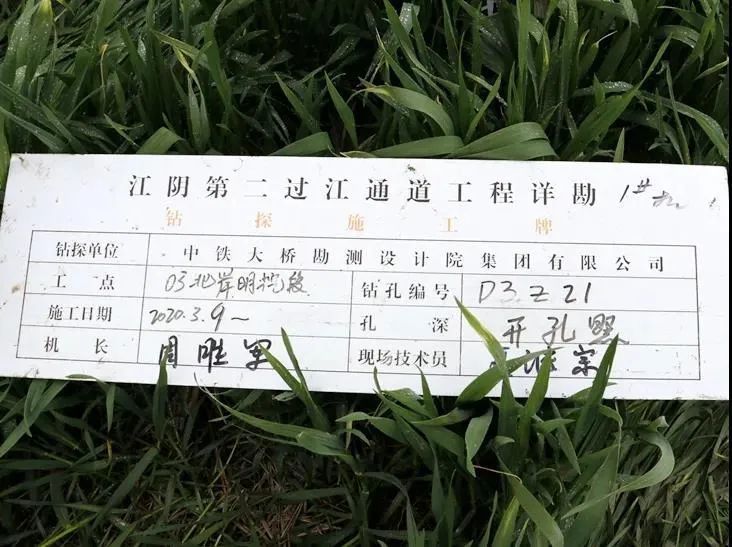 江阴第二过江通道工程详勘 1#机
钻探施工牌
钻探单位 中铁大桥勘测设计院集团有限公司
工点 03北岸明挖段 钻孔编号 D3.Z21
施工日期 2020.3.9~ 孔深 开孔照
机长 周胜军 现场技术员